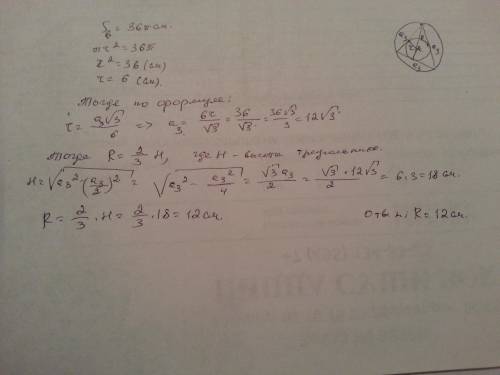 S = 36π см.
πr² = 36π
r² = 36 (см)
r = 6 (см).
Тогда по формуле:
r = a₃√3/6 => a₃ = 6r/√3 = 36/√3 = 36√3/3 = 12√3
Тогда R = 2/3 H, где H - высота треугольника.
H = √(a₃² - (a₃/2)²) = √(a₃² - a₃²/4) = √3 a₃/2 = √3 · 12√3/2 = 6·3 = 18 см.
R = 2/3 · H = 2/3 · 18 = 12 см. Ответ: R = 12 см.